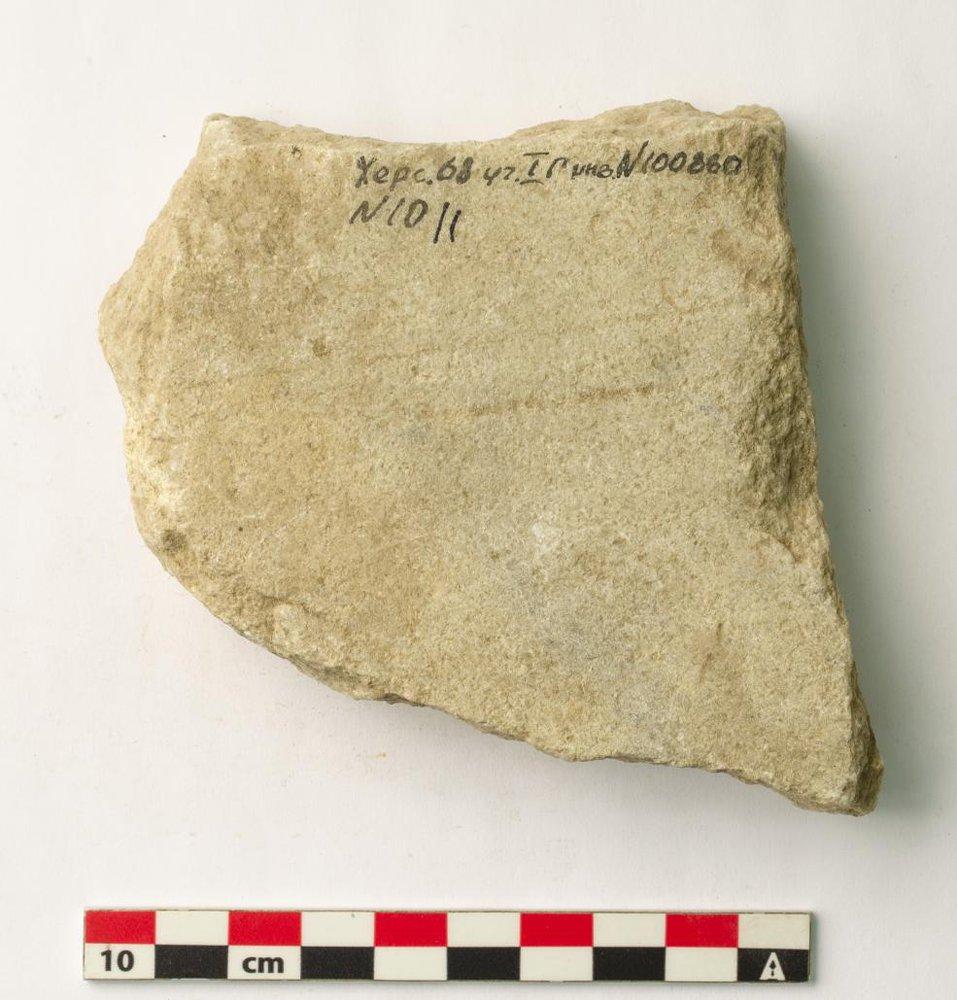 Херс.68 уч.I Г инв.N100860
N10/11
10 cm